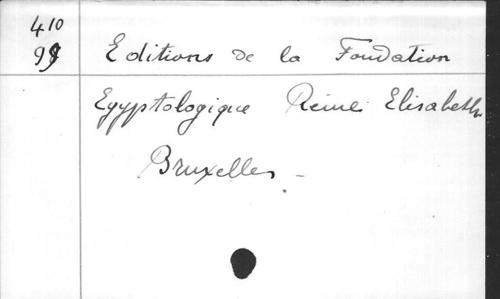 410
Editions de la Fondation
Egyptologique Reine Elisabeth
Bruxelles -